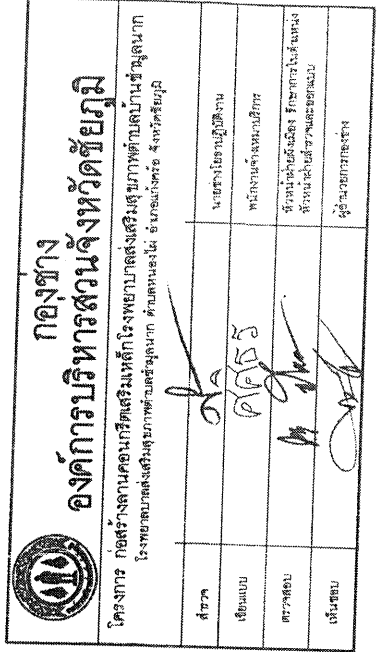 กองช่าง
องค์การบริหารส่วนจังหวัดชัยภูมิ
โครงการ ก่อสร้างลานคอนกรีตเสริมเหล็กโรงพยาบาลส่งเสริมสุขภาพตำบลบ้านซำมูลนาก
โรงพยาบาลส่งเสริมสุขภาพตำบลซำมูลนาก ตำบลหนองไผ่ อำเภอแก้งคร้อ จังหวัดชัยภูมิ
สำรวจ นายช่างโยธาปฏิบัติงาน
เขียนแบบ พนักงานจ้างเหมาบริการ
ตรวจสอบ หัวหน้าฝ่ายผังเมือง รักษาการในตำแหน่ง
หัวหน้าฝ่ายสำรวจและออกแบบ
เห็นชอบ ผู้อำนวยการกองช่าง